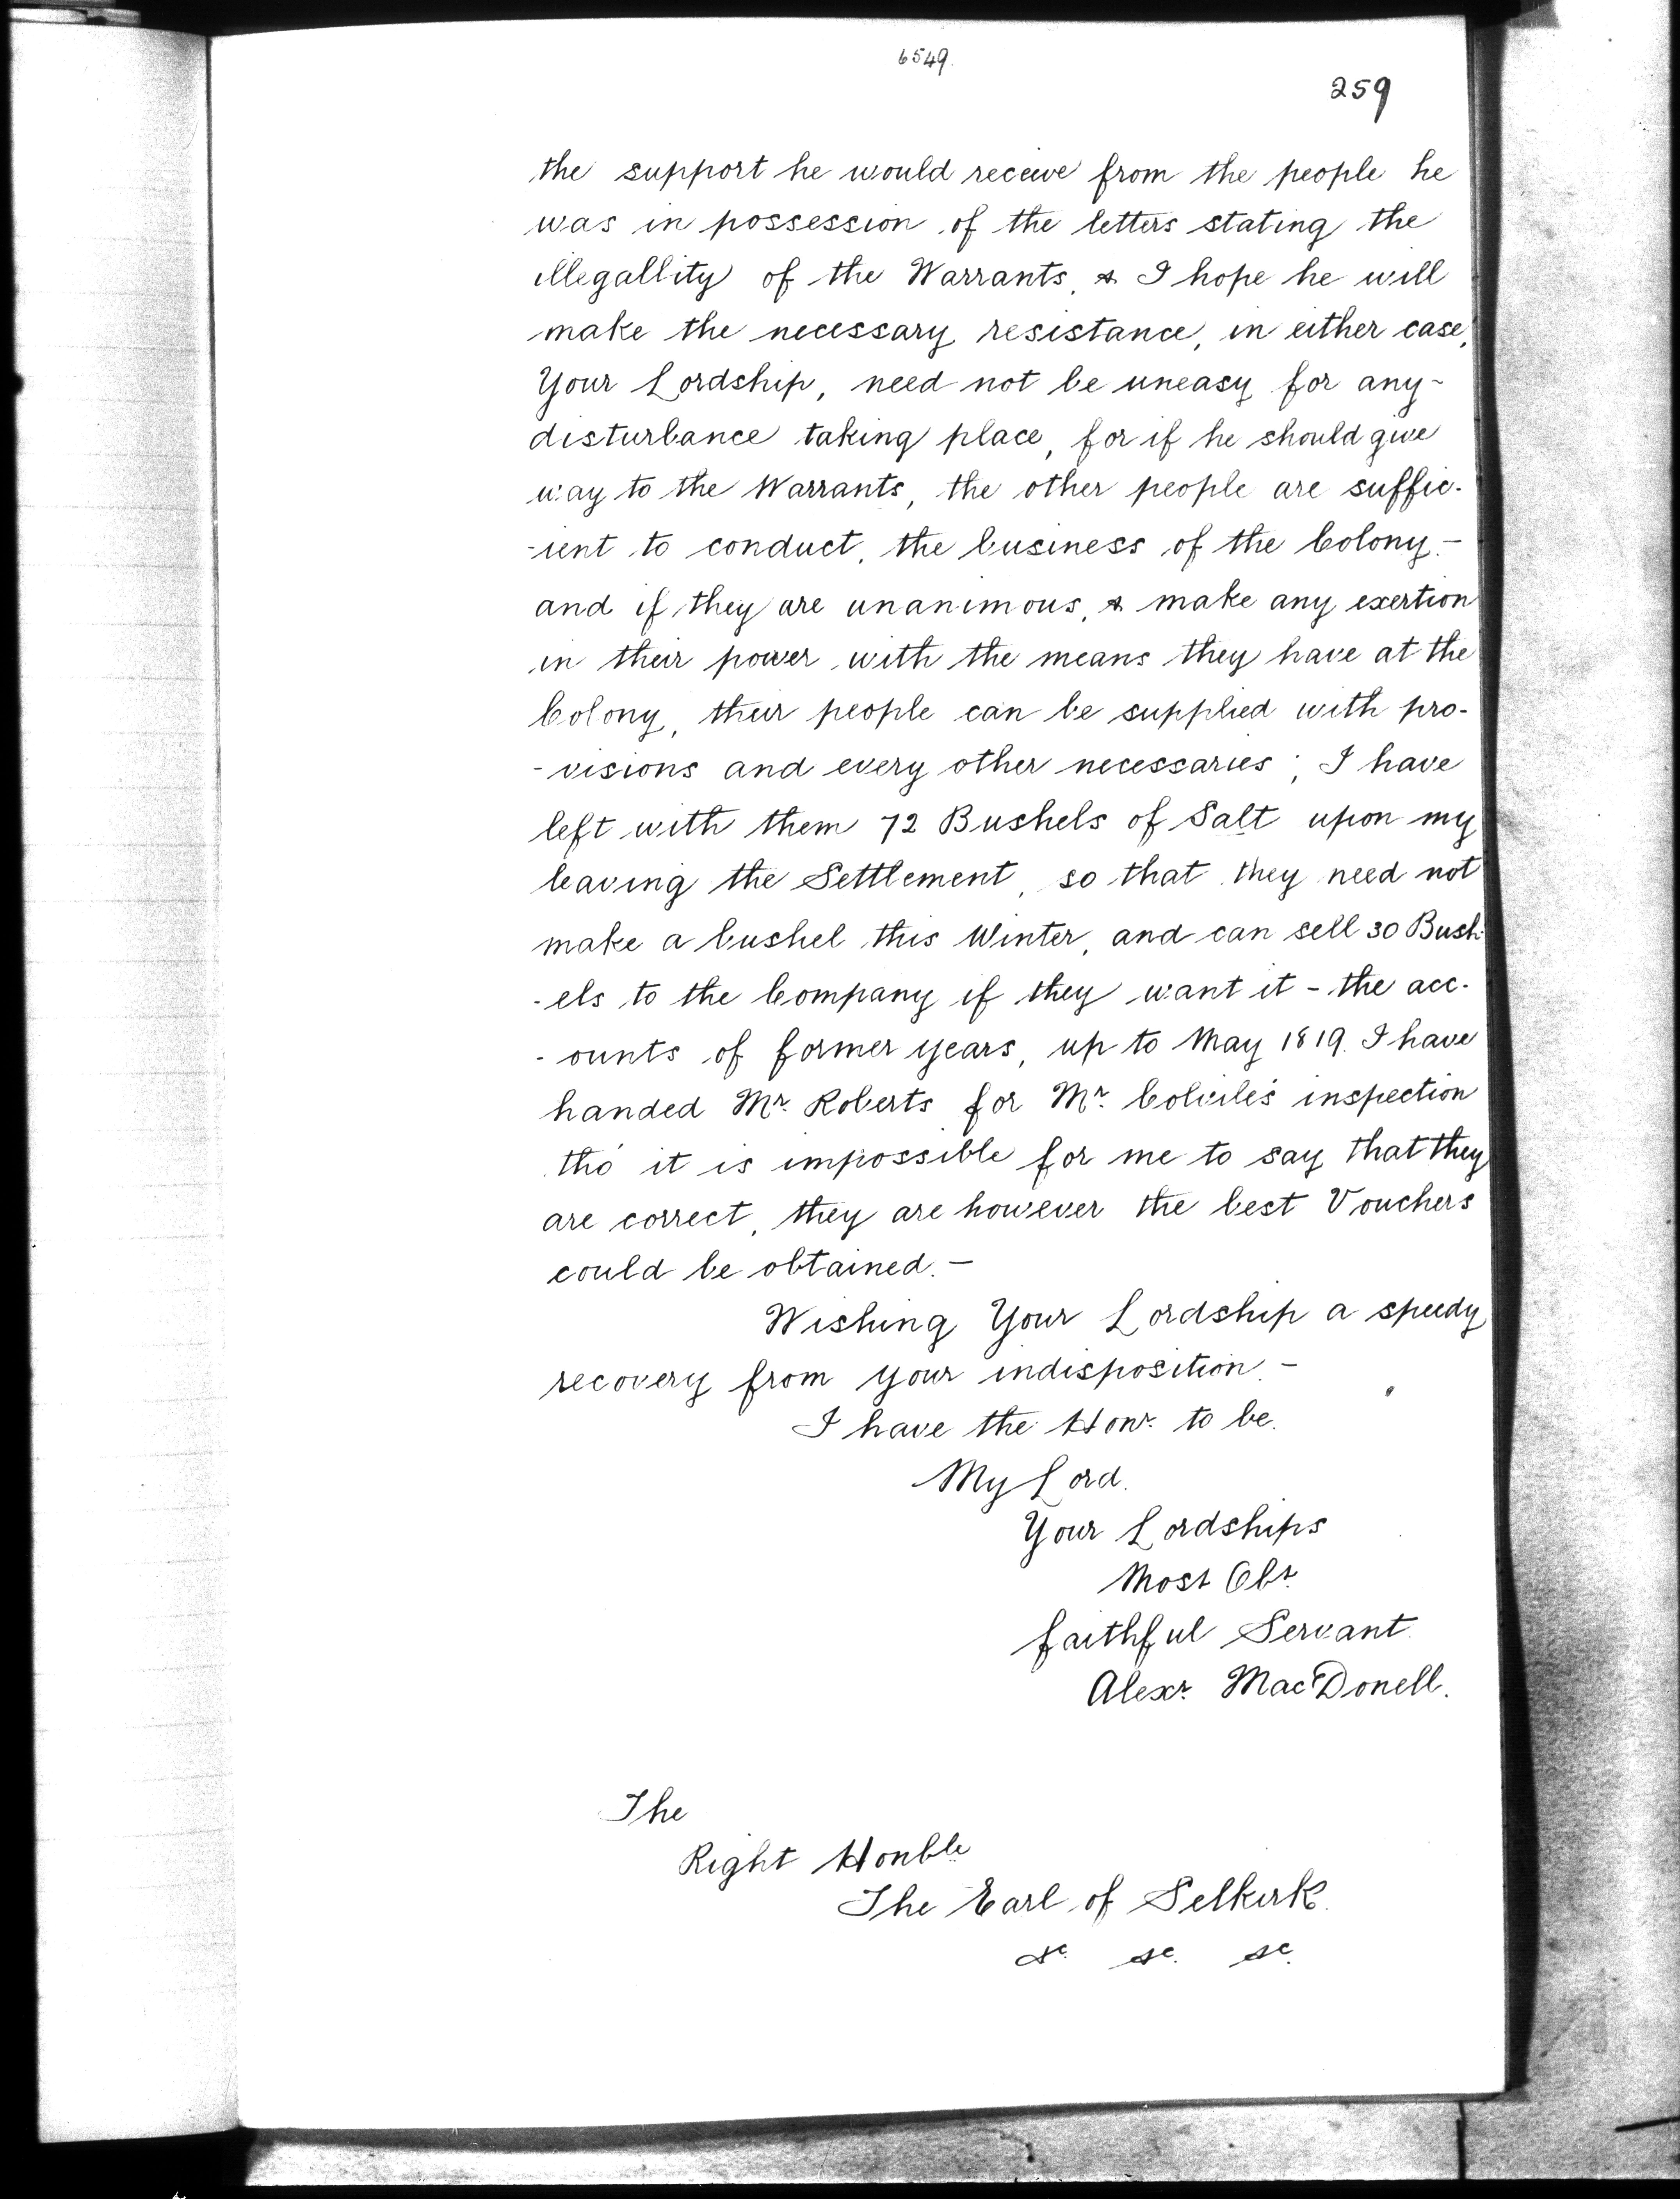 6549.
259
the support he would receive from the people he
was in possession of the letters stating the
illegallity of the Warrants, & I hope he will
make the necessary resistance, in either case,
Your Lordship, need not be uneasy for any-
disturbance taking place, for if he should give
way to the Warrants, the other people are suffic-
-ient to conduct, the business of the Colony.-
and if they are unanimous, & make any exertion
in their power with the means they have at the
Colony, their people can be supplied with pro-
-visions and every other necessaries; I have
left with them 72 Bushels of Salt upon my
leaving the Settlement, so that they need not
make a bushel this Winter, and can sell 30 Bush-
-els to the Company if they want it - the acc-
-ounts of former years, up to May 1819. I have
handed Mr. Roberts for Mr. Colvile's inspection
tho' it is impossible for me to say that they
are correct, they are however the best Vouchers
could be obtained.-
Wishing Your Lordship a speedy
recovery from your indisposition.-
I have the Honr. to be.
My Lord.
Your Lordships
Most Obt.
faithful Servant.
Alexr. MacDonell.
The
Right Honble
The Earl of Selkirk.
&c. &c. &c.